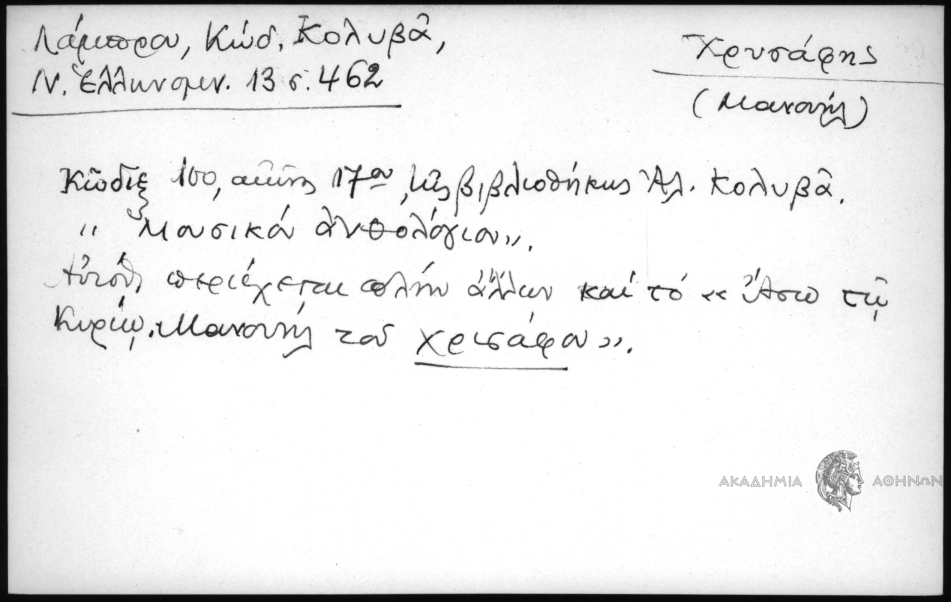 Λάμπρου, Κώδ. Κολυβᾶ,
Ν. Ἑλληνομν. 13 σ. 462
Χρυσάφης
(Μανουὴλ)
Κῶδιξ 100, αἰῶνος 17ου, τῆς βιβλιοθήκης Ἀλ. Κολυβᾶ.
" Μουσικὸν ἀνθολόγιον".
περιέχεται πλὴν ἄλλων καὶ τὸ « ᾌσω τῷ
Κυρίῳ, Μανουὴλ τοῦ χρισάφου».
ΑΚΑΔΗΜΙΑ ΑΘΗΝΩΝ